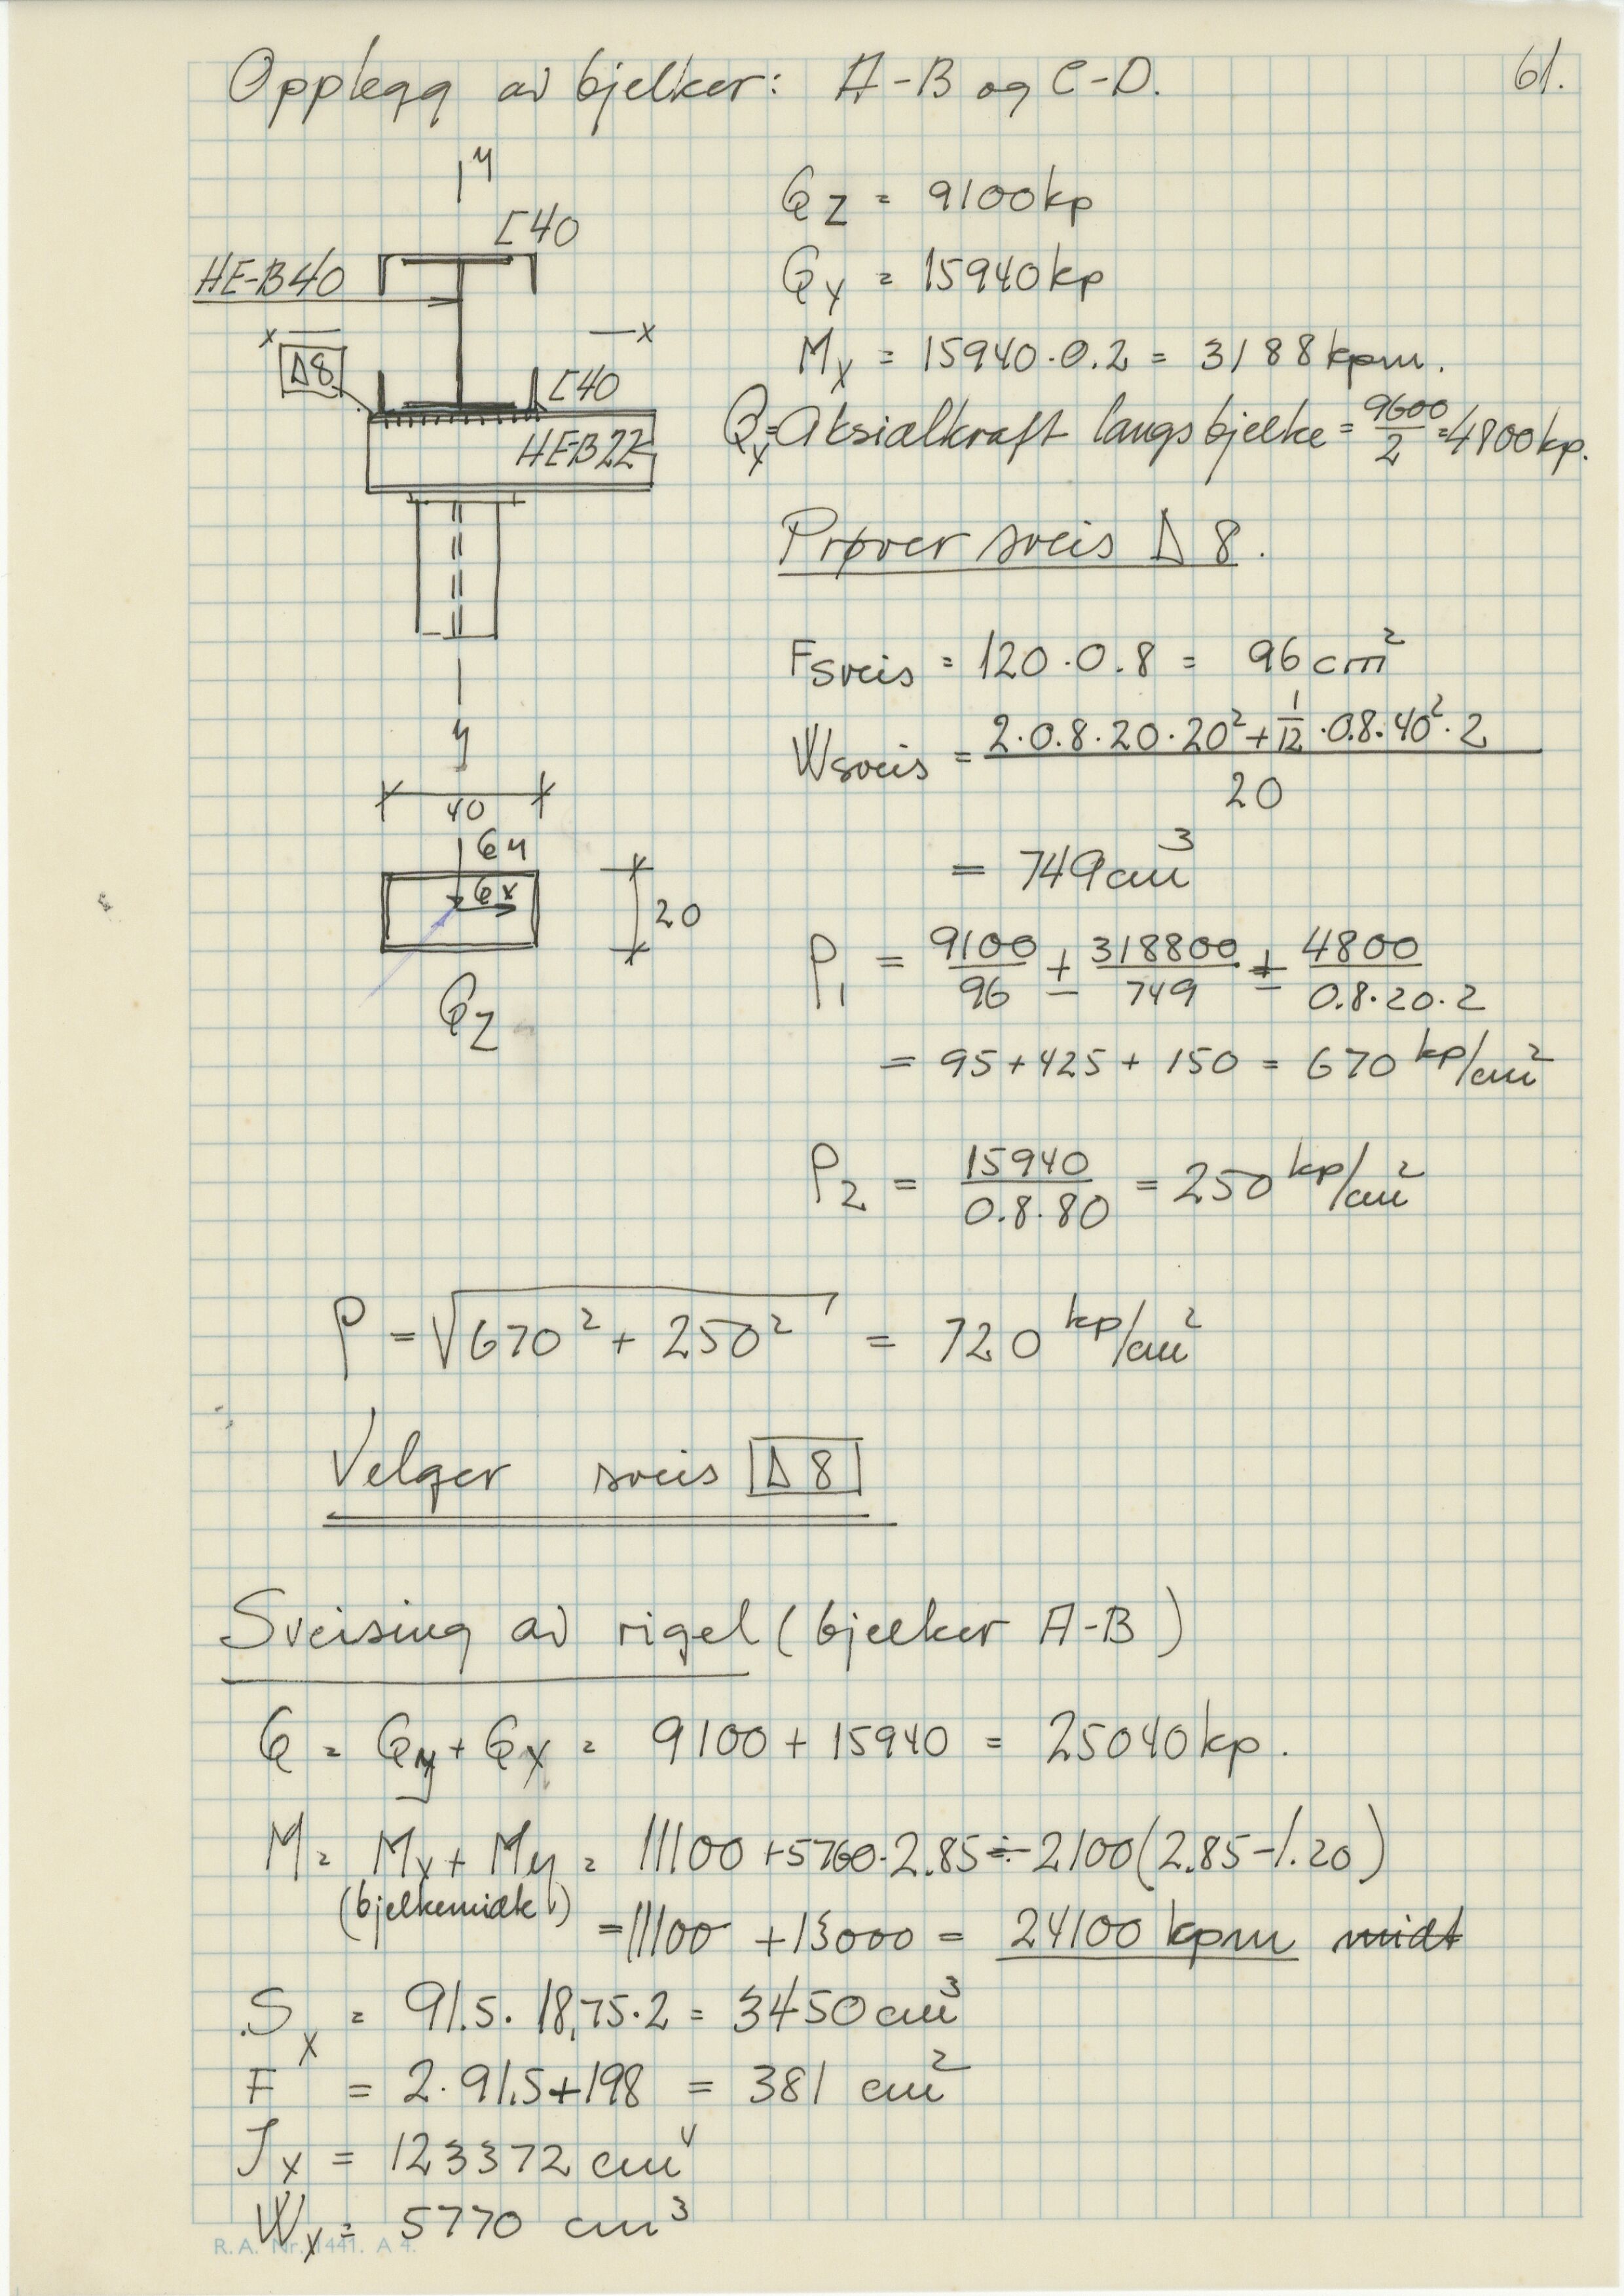 Opplegg av bjelker: A-B og C-D.
61.
y
[40
HE-B40
x
—x
Δ8
[40
HEB22
y
40
Qy
Qx
20
Qz
Qz = 9100kp
Qy = 15940kp
Mx = 15940·0.2 = 3188kpm.
Qx=Aksialkraft langs bjelke = 9600/2 =4800kp.
Prøver sveis Δ 8.
Fsveis = 120·0.8 = 96cm²
Wsveis = (2·0.8·20·20²+1/12·0.8·40²·2)/20
= 749cm³
ρ1 = 9100/96 ± 318800/749 ± 4800/0.8·20·2
= 95+425+150 = 670 kp/cm²
ρ2 = 15940/0.8·80 = 250 kp/cm²
ρ = √670²+250² = 720 kp/cm²
Velger sveis Δ8
Sveising av rigel (bjelker A-B)
Q = Qy+Qx = 9100+15940 = 25040kp.
M= Mx+My = 11100+5760·2.85÷2100(2.85-1.20)
(bjelkemidt)
=11100 +13000 = 24100 kpm midt
Sx = 91.5·18,75·2 = 3450cm³
F = 2·91.5+198 = 381 cm²
Jx = 123372cm⁴
Wx = 5770 cm³
R.A. Nr. 1441. A 4.